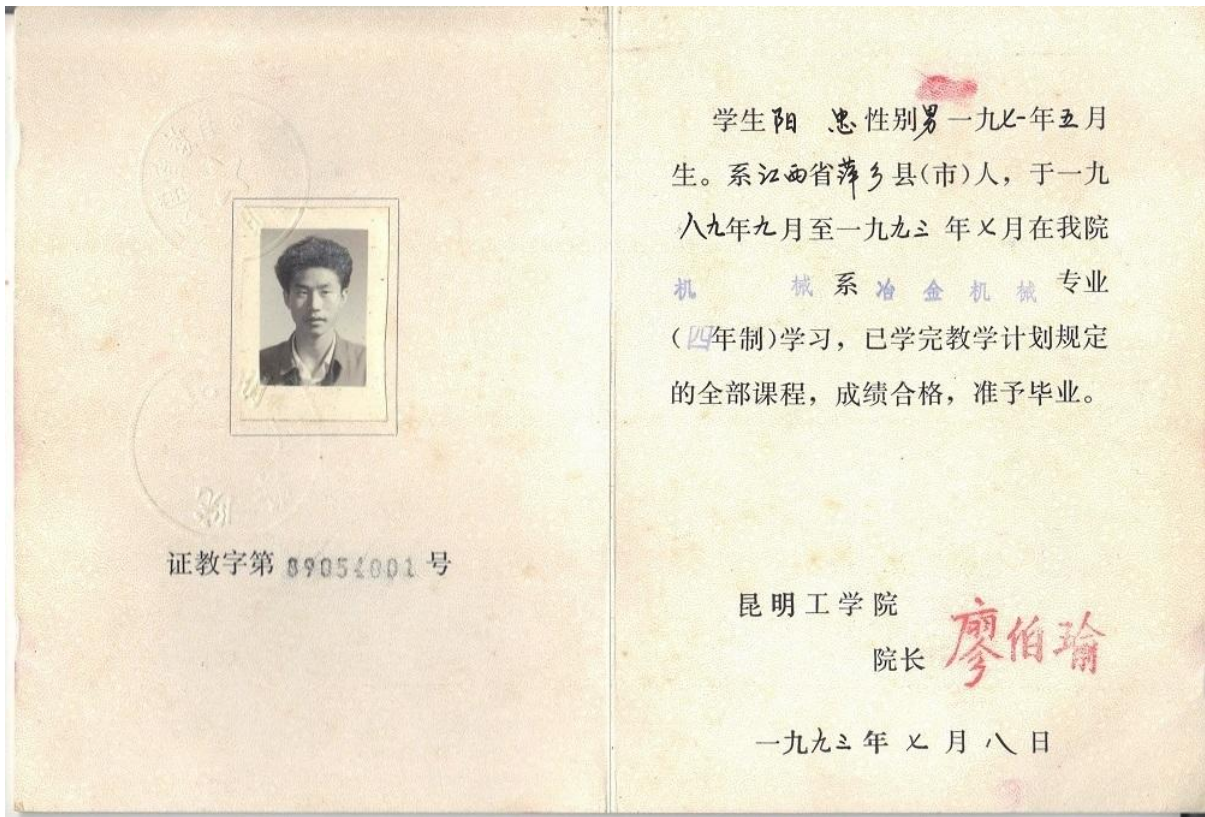 证教字第 89054001 号
学生阳 忠性别男一九七一年五月
生。系江西省萍乡县(市)人，于一九
八九年九月至一九九三年七月在我院
机 械系冶金机械专业
(四年制)学习，已学完教学计划规定
的全部课程，成绩合格，准予毕业。
昆明工学院
院长 廖伯瑜
一九九三年七月八日